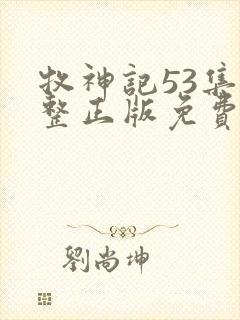 牧神記53集
整正版免費
劉尚坤